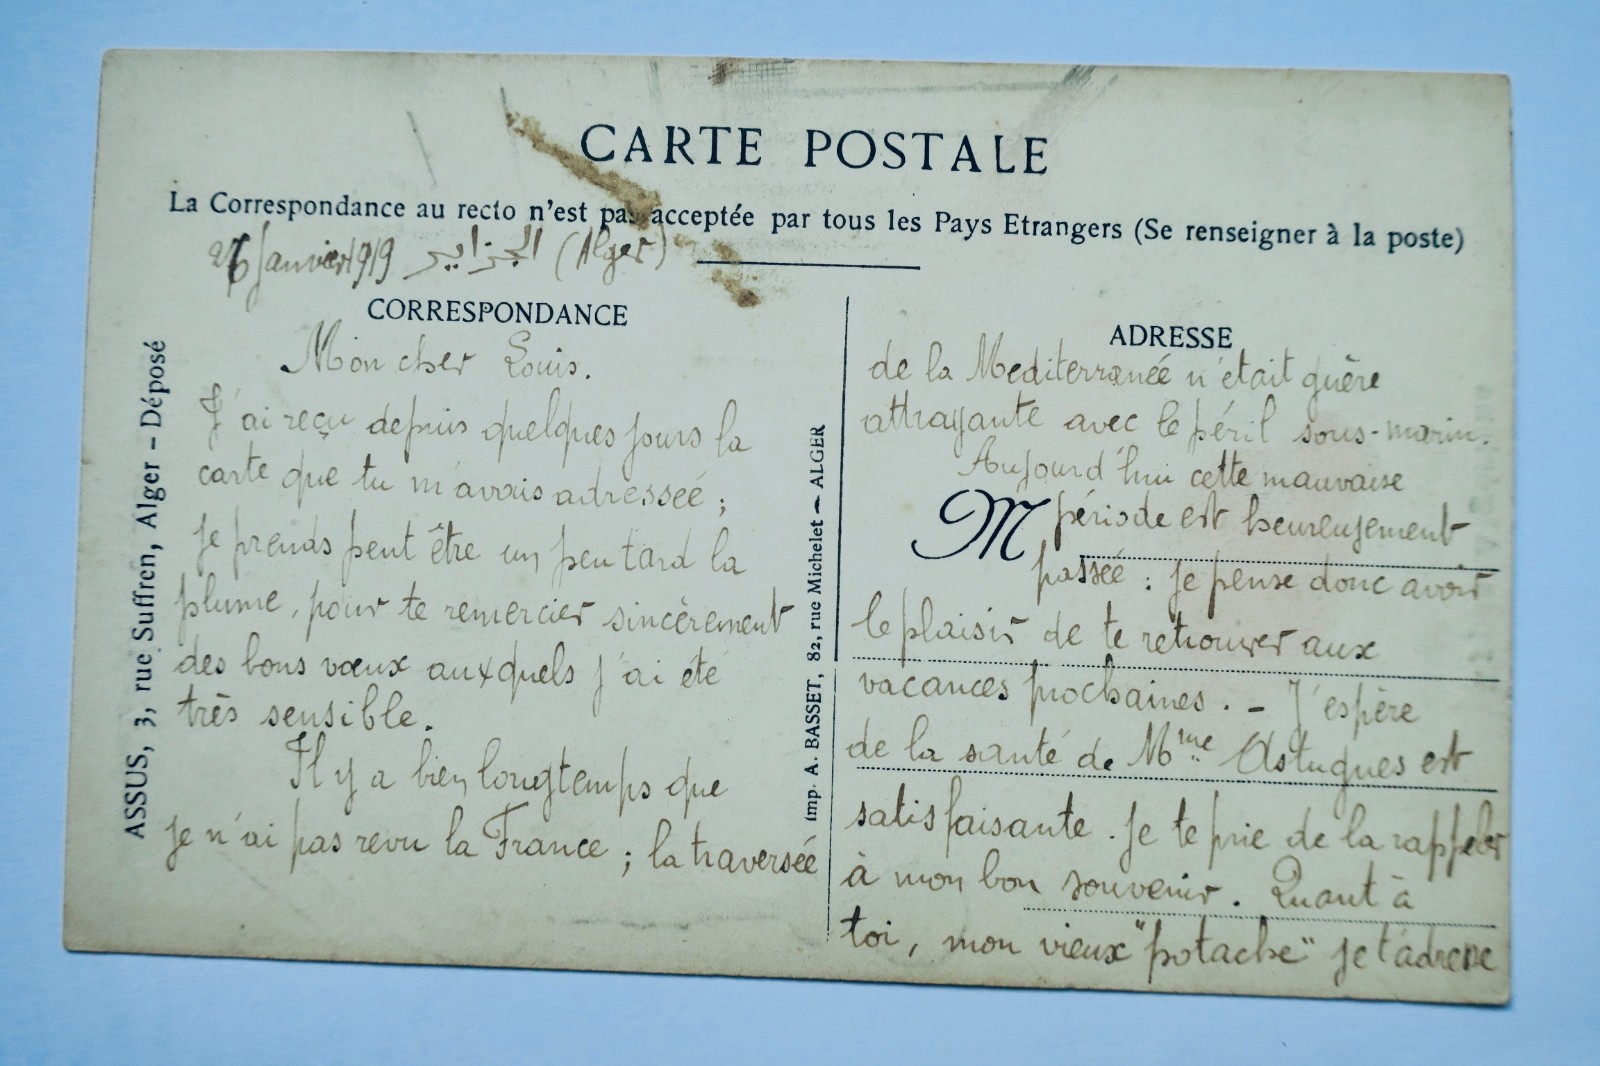 CARTE POSTALE
La Correspondance au recto n'est pas acceptée par tous les Pays Etrangers (Se renseigner à la poste)
26 Janvier 1919 الجزاير (Alger)
CORRESPONDANCE
Mon cher Louis.
J'ai reçu depuis quelques jours la
carte que tu m'avais adressée ;
je prends peut être un peu tard la
plume, pour te remercier sincèrement
des bons vœux auxquels j'ai été
très sensible.
Il y a bien longtemps que
je n'ai pas revu la France ; la traversée
ASSUS, 3, rue Suffren, Alger – Déposé
Imp. A. BASSET, 82, rue Michelet — ALGER
ADRESSE
de la Mediterranée n'était guère
attrayante avec le péril sous-marin.
Aujourd'hui cette mauvaise
M période est heureusement
passée : je pense donc avoir
le plaisir de te retrouver aux
vacances prochaines . – J'espère
de la santé de Mme Astugues est
satisfaisante . Je te prie de la rappeler
à mon bon souvenir . Quant à
toi, mon vieux "potache" je t'adresse